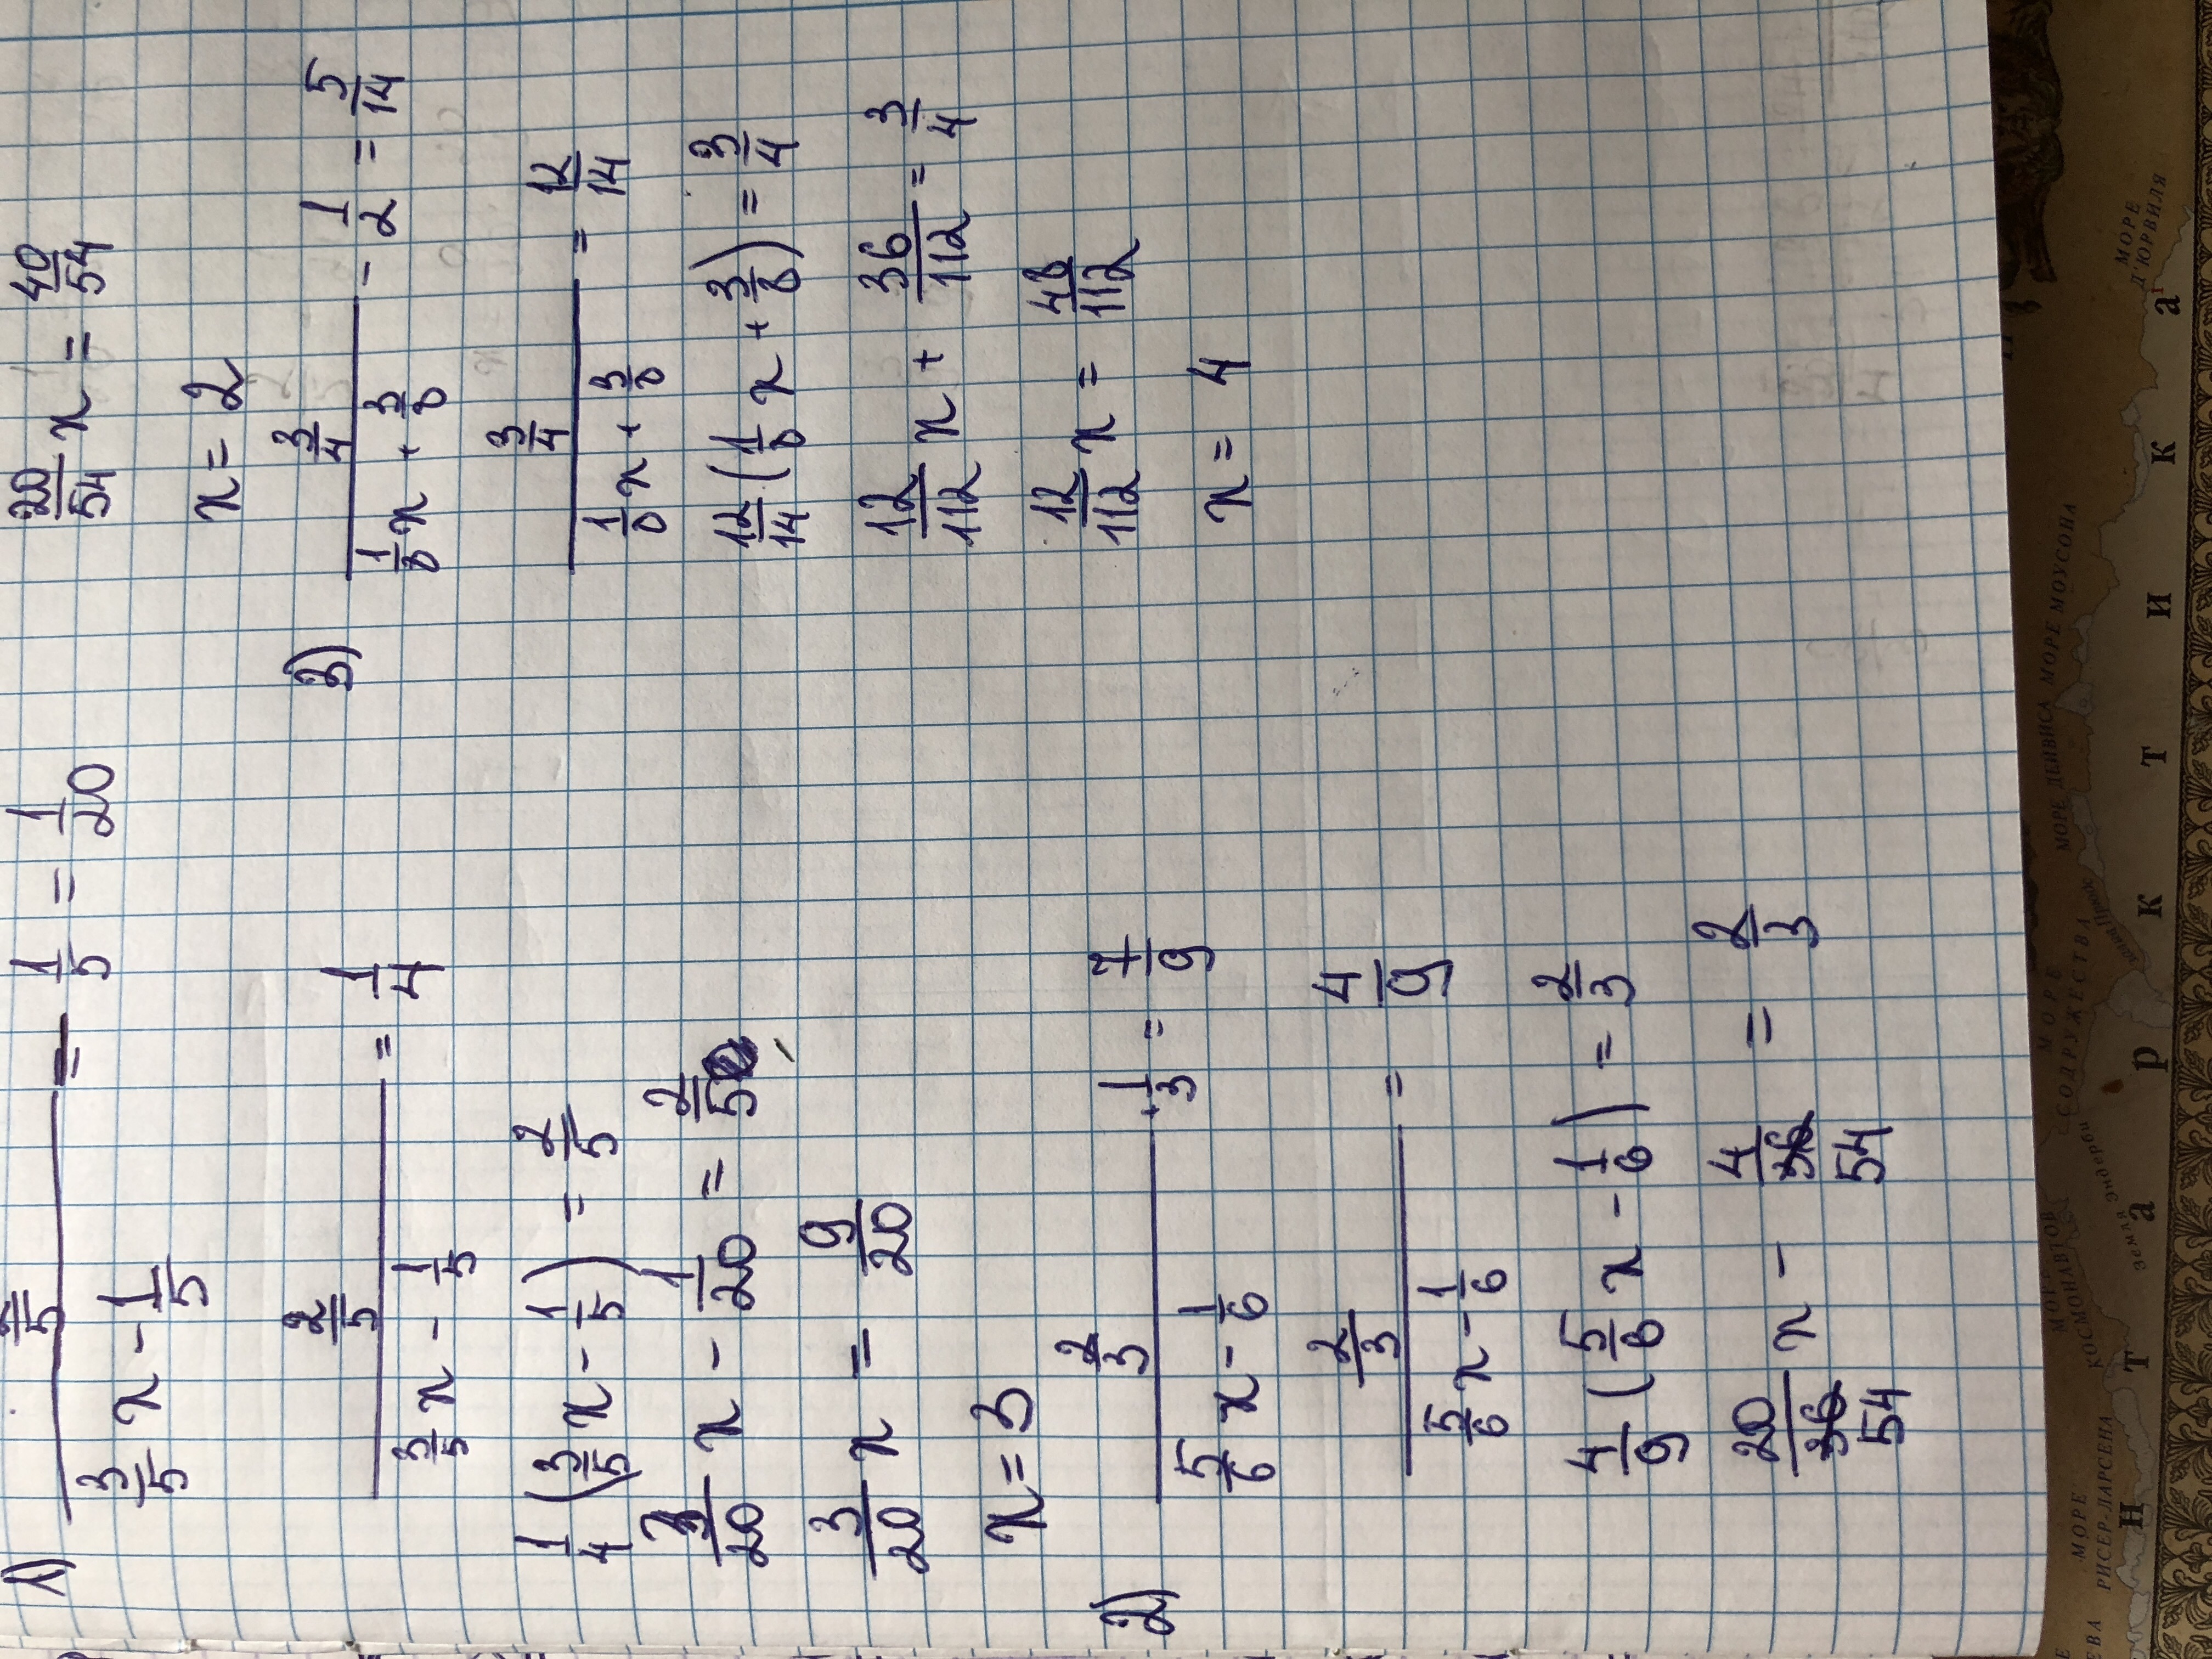 1) (2/5)/(3/5 x - 1/5) - 1/5 = 1/20
(2/5)/(3/5 x - 1/5) = 1/4
1/4 (3/5 x - 1/5) = 2/5
3/20 x - 1/20 = 2/5
3/20 x = 9/20
x = 3
2) (2/3)/(5/6 x - 1/6) + 1/3 = 7/9
(2/3)/(5/6 x - 1/6) = 4/9
4/9 (5/6 x - 1/6) = 2/3
20/54 x - 4/54 = 2/3
20/54 x = 40/54
x = 2
3) (3/4)/(1/8 x + 3/8) - 1/2 = 5/14
(3/4)/(1/8 x + 3/8) = 12/14
12/14 (1/8 x + 3/8) = 3/4
12/112 x + 36/112 = 3/4
12/112 x = 48/112
x = 4
МОРЕ РИСЕР-ЛАРСЕНА
МОРЕ КОСМОНАВТОВ
МОРЕ СОДРУЖЕСТВА
МОРЕ ДЕЙВИСА
МОРЕ МОУСОНА
МОРЕ Д'ЮРВИЛЯ
земля эндерби
Н Т А Р К Т И К А